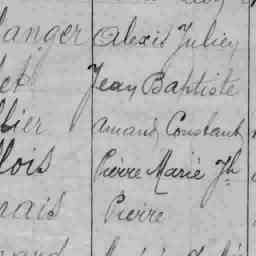 langer Alexis Julien
et Jean Baptiste
llier Amand Constant
llois Pierre Marie Jh
nais Pierre